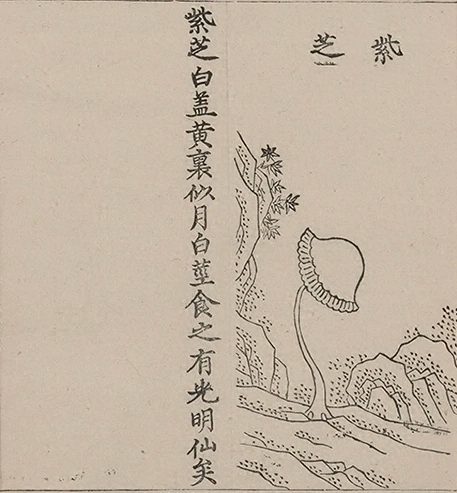 紫芝
紫芝白盖黄裏似月白莖食之有光明仙矣